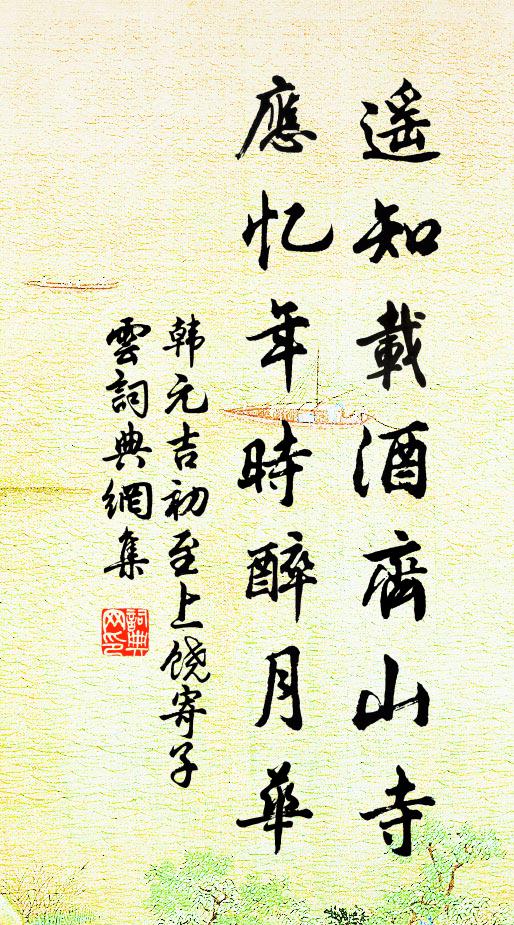 遥知載酒齊山寺
應忆年時醉月華
韩元吉初至上饶寄子
雲詞典網集
詞典
网印